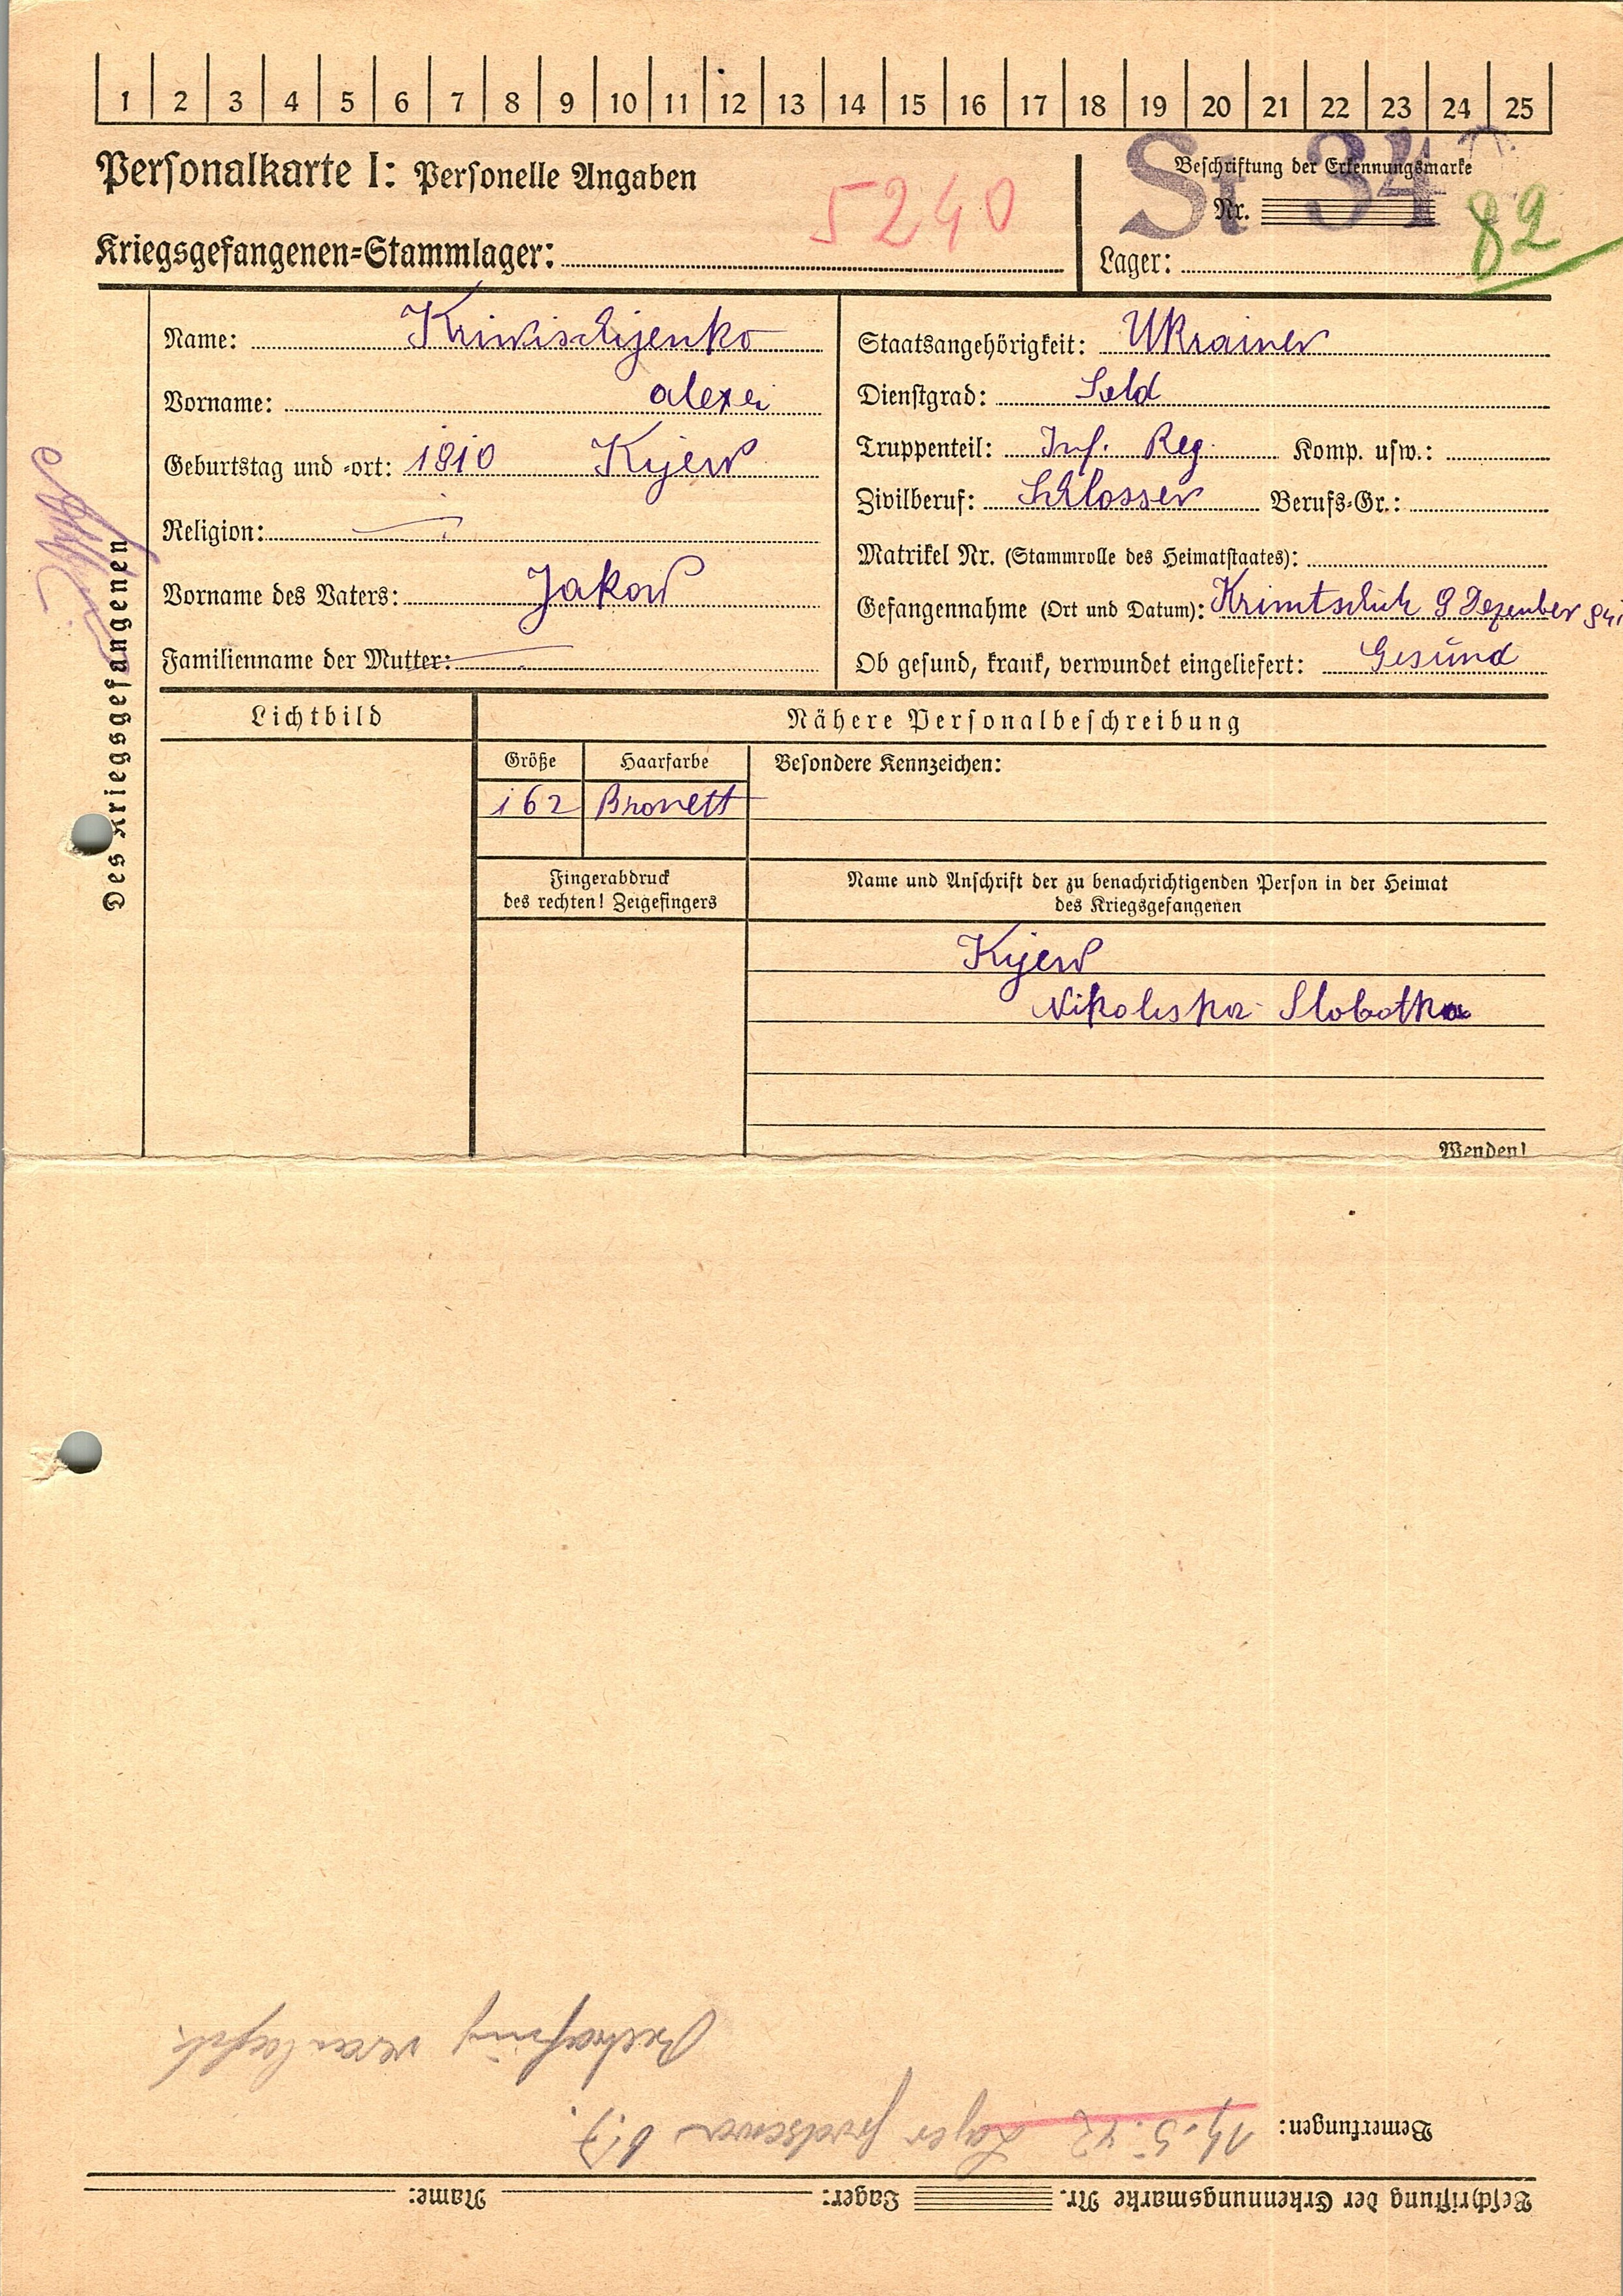 1 2 3 4 5 6 7 8 9 10 11 12 13 14 15 16 17 18 19 20 21 22 23 24 25
Personalkarte I: Personelle Angaben
5240
Kriegsgefangenen-Stammlager:
Beschriftung der Erkennungsmarke
St 34
Nr.
82
Lager:
Des Kriegsgefangenen
Name: Kriwischijenko
Vorname: Alexei
Geburtstag und -ort: 1910 Kijew
Religion: —
Vorname des Vaters: Jakow
Familienname der Mutter: —
Staatsangehörigkeit: Ukrainer
Dienstgrad: Sold
Truppenteil: Inf. Reg. Komp. usw.:
Zivilberuf: Schlosser Berufs-Gr.:
Matrikel Nr. (Stammrolle des Heimatstaates):
Gefangennahme (Ort und Datum): Krimtschuk 9 Dezember 941
Ob gesund, krank, verwundet eingeliefert: Gesund
Lichtbild
Nähere Personalbeschreibung
Größe Haarfarbe Besondere Kennzeichen:
162 Bronett
Fingerabdruck
des rechten! Zeigefingers
Name und Anschrift der zu benachrichtigenden Person in der Heimat
des Kriegsgefangenen
Kijew
Nikolska Slobotka
Wenden!
Beschriftung der Erkennungsmarke Nr. Lager: Name:
Bemerkungen: 14.5.42 Lager
Bestrafung veranlaßt.